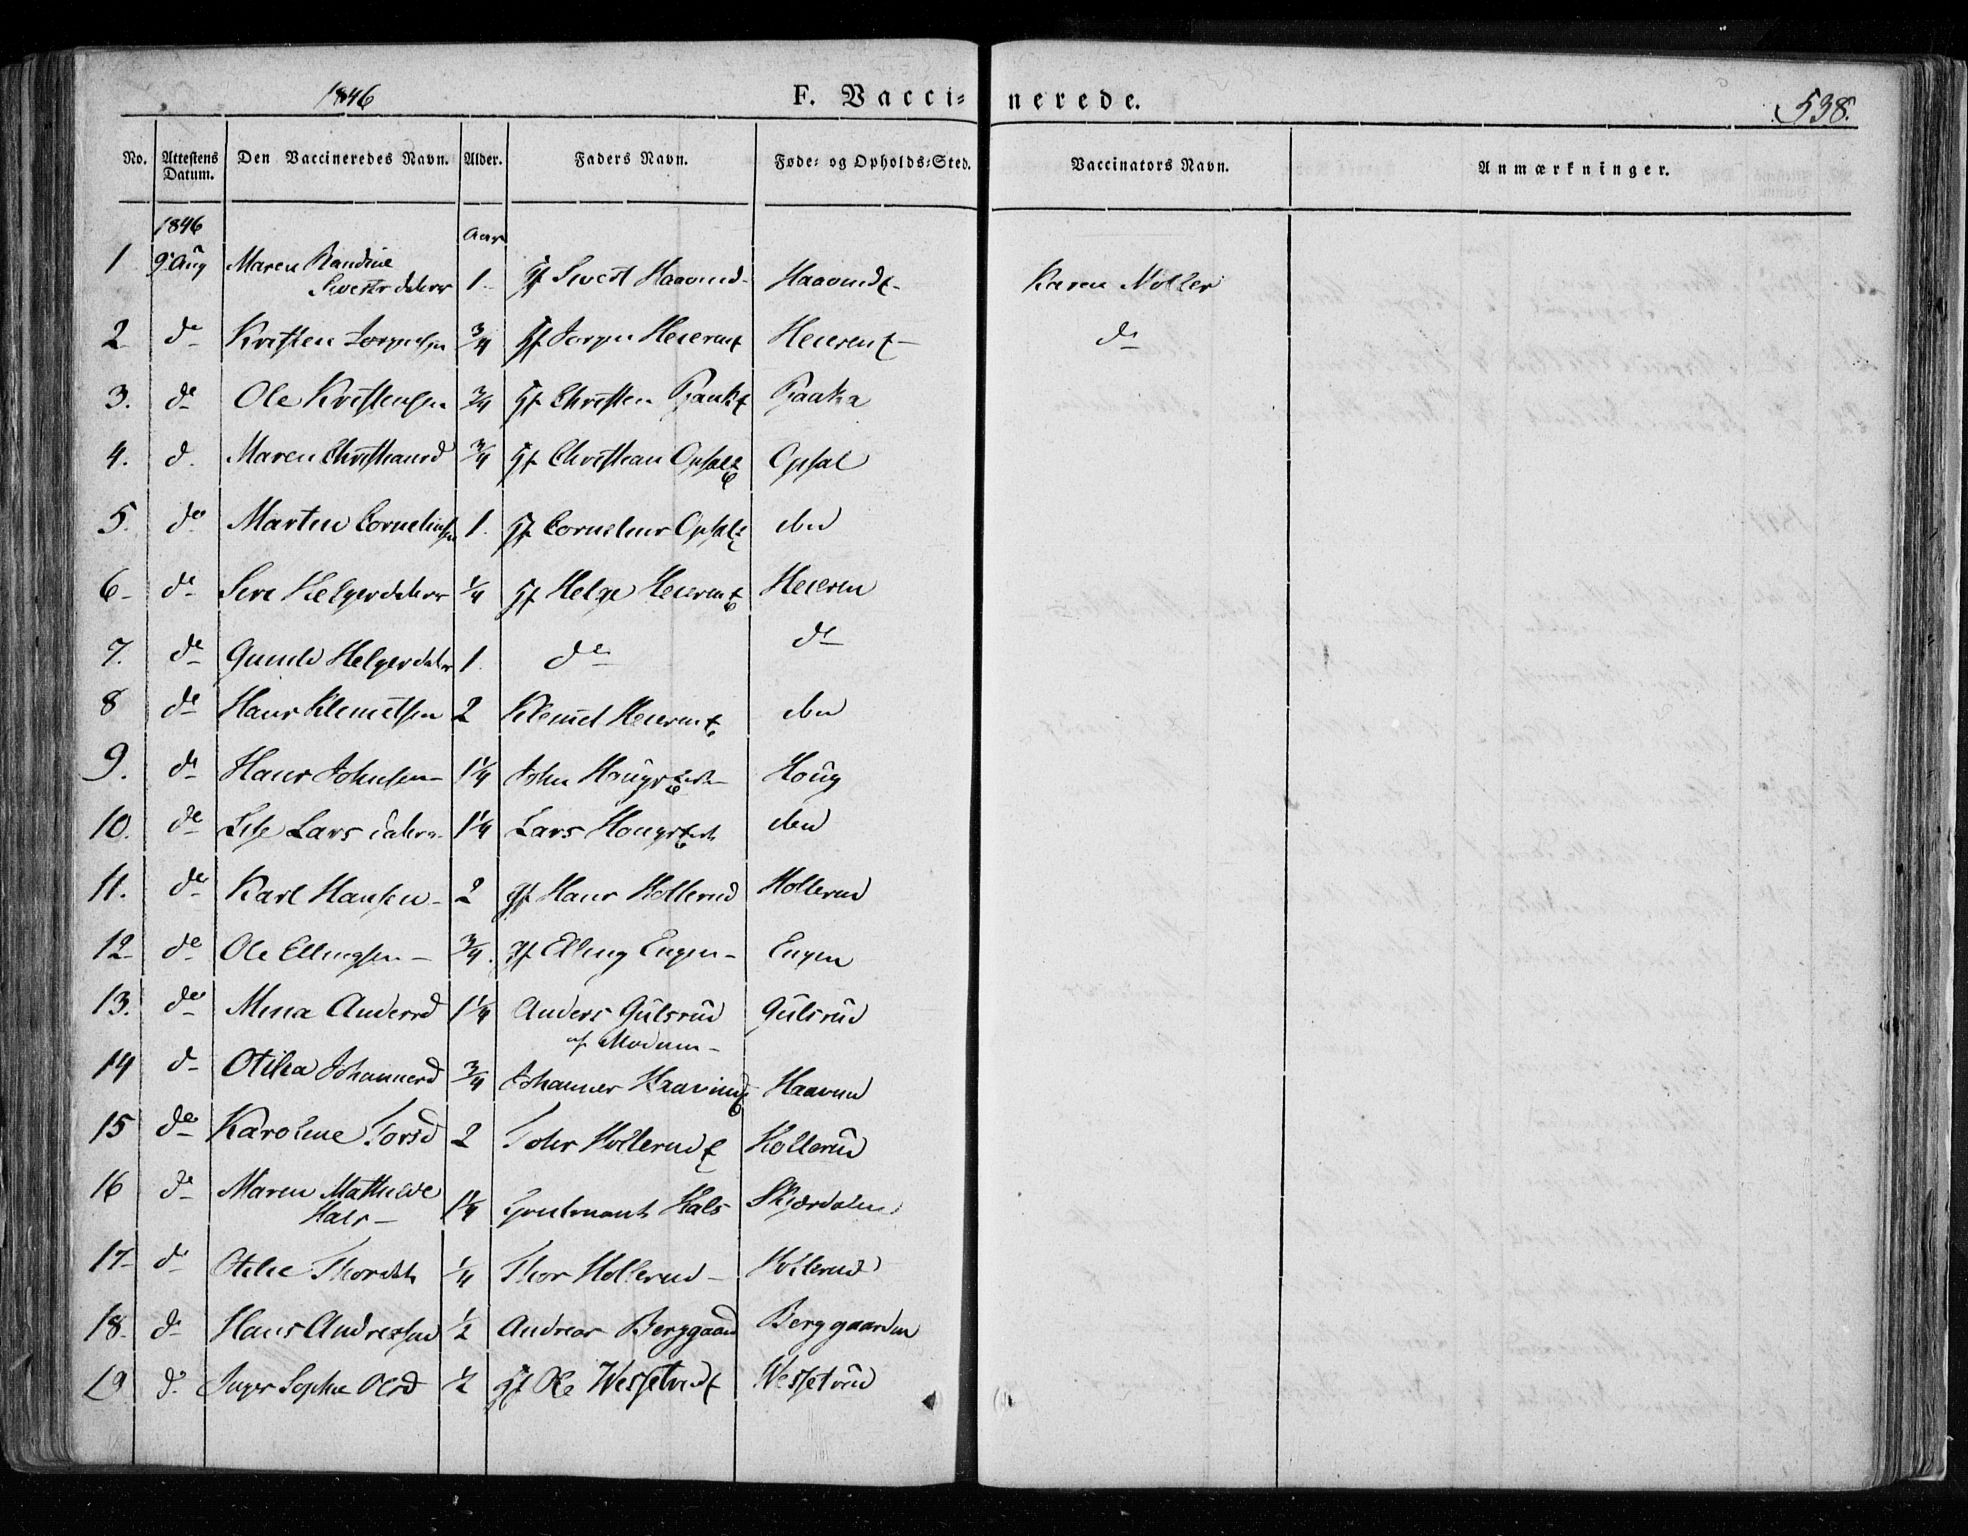 1846
F. Vacci= nerede.
538.
No. Attestens Datum. Den Vaccineredes Navn. Alder. Faders Navn. Føde= og Opholds=Sted. Vaccinators Navn. Anmærkninger.
1846 Aar
1 9 Aug Maren Randine
Siverts datter 1. Gf Sivert Haavind Haavind Karen Møller
2 do Kristen Jorgensen 3/4 Gf Jorgen Heieren Heieren do
3. do Ole Kristensen 3/4 Gf Christen
4. d. Maren Christiansd 3/4 Gf Christian Opsal Opsal
5. do Marten Corneliussen 1. Gf Cornelius Opsal
6 do Siri Helgesdatter 1/4 Gf Helge Heieren Heieren
7. do Helgesdatter 1. do do
8 do Hans Klemetsen 2 Klemet Heieren
9. do Hans Johnsen 1 1/4 John Houg
10. do Lise Lars datter 1 1/4 Lars
11. do Karl Hansen 2 Gf Hans Hollerud Hollerud
12 do Ole Ellingsen 3/4. Gf Elling Engen Engen
13. do Mina Andersd 1 1/4 Anders Gulsrud Gulsrud
af Modum
14 d Otilia Johannesd 3/4 Johannes Haavind Haavind
15 do Karoline Torsd 2 Tohr Hollerud Hollerud
16 do Maren Mathilde
Hals 1 1/4 Hals Skjerdalen
17 do Otilie Thorsdtr 1/4 Thor Hollerud Hollerud
18. do Hans Andreassen 1/2 Andreas Berggaard Berggaarden
19 d. Inger Sophie Olsd 1/2 Gf Ole Wesselrud Wesselrud